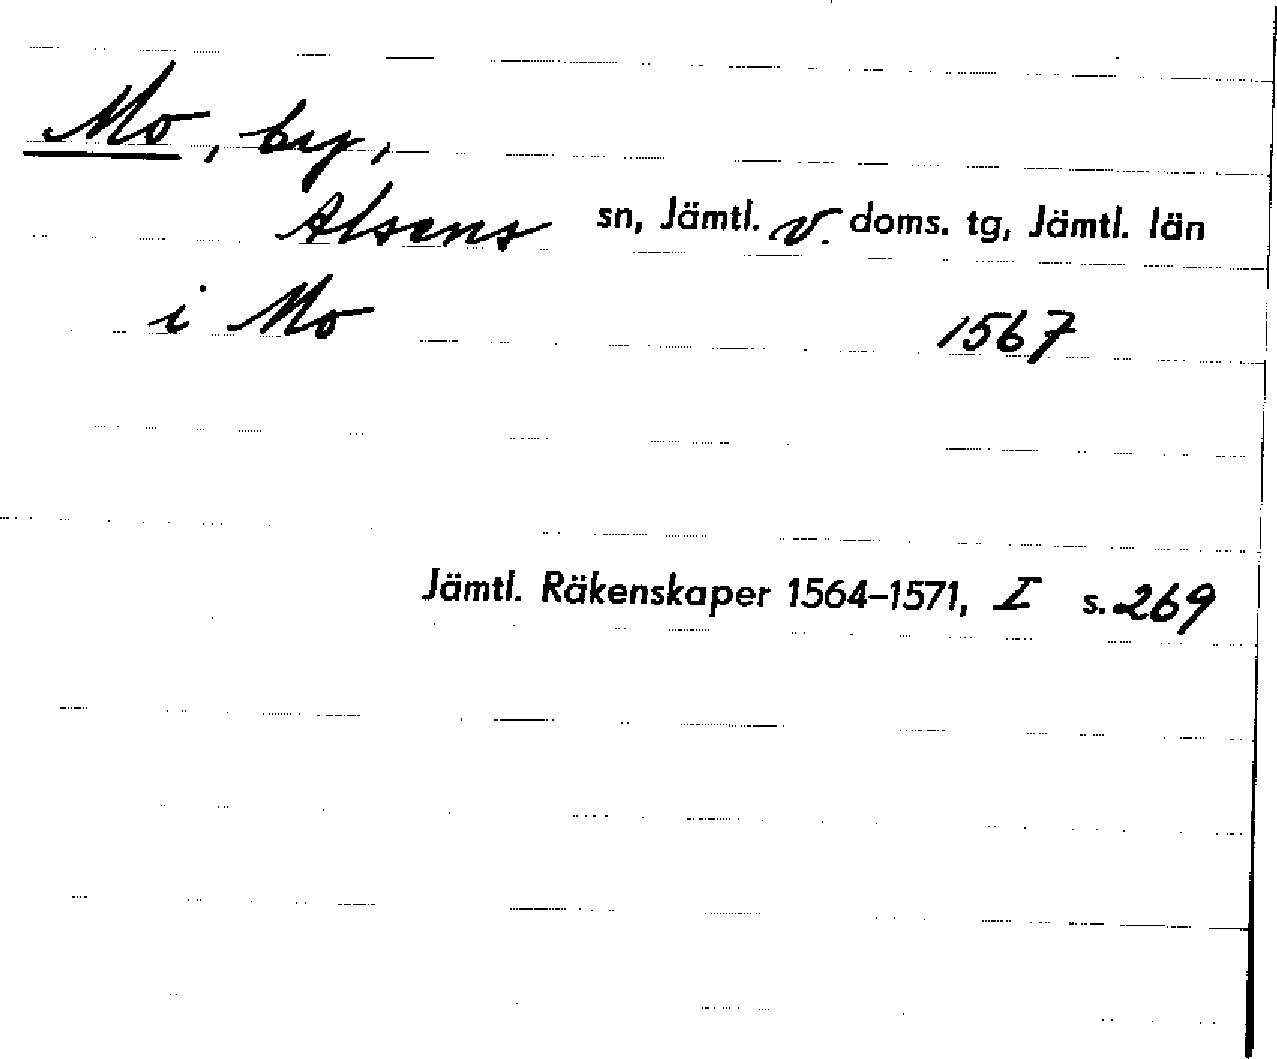 Mo, by,
Alsens sn, Jämtl. v. doms. tg, Jämtl. län
i Mo 1567
Jämtl. Räkenskaper 1564–1571, I s. 269